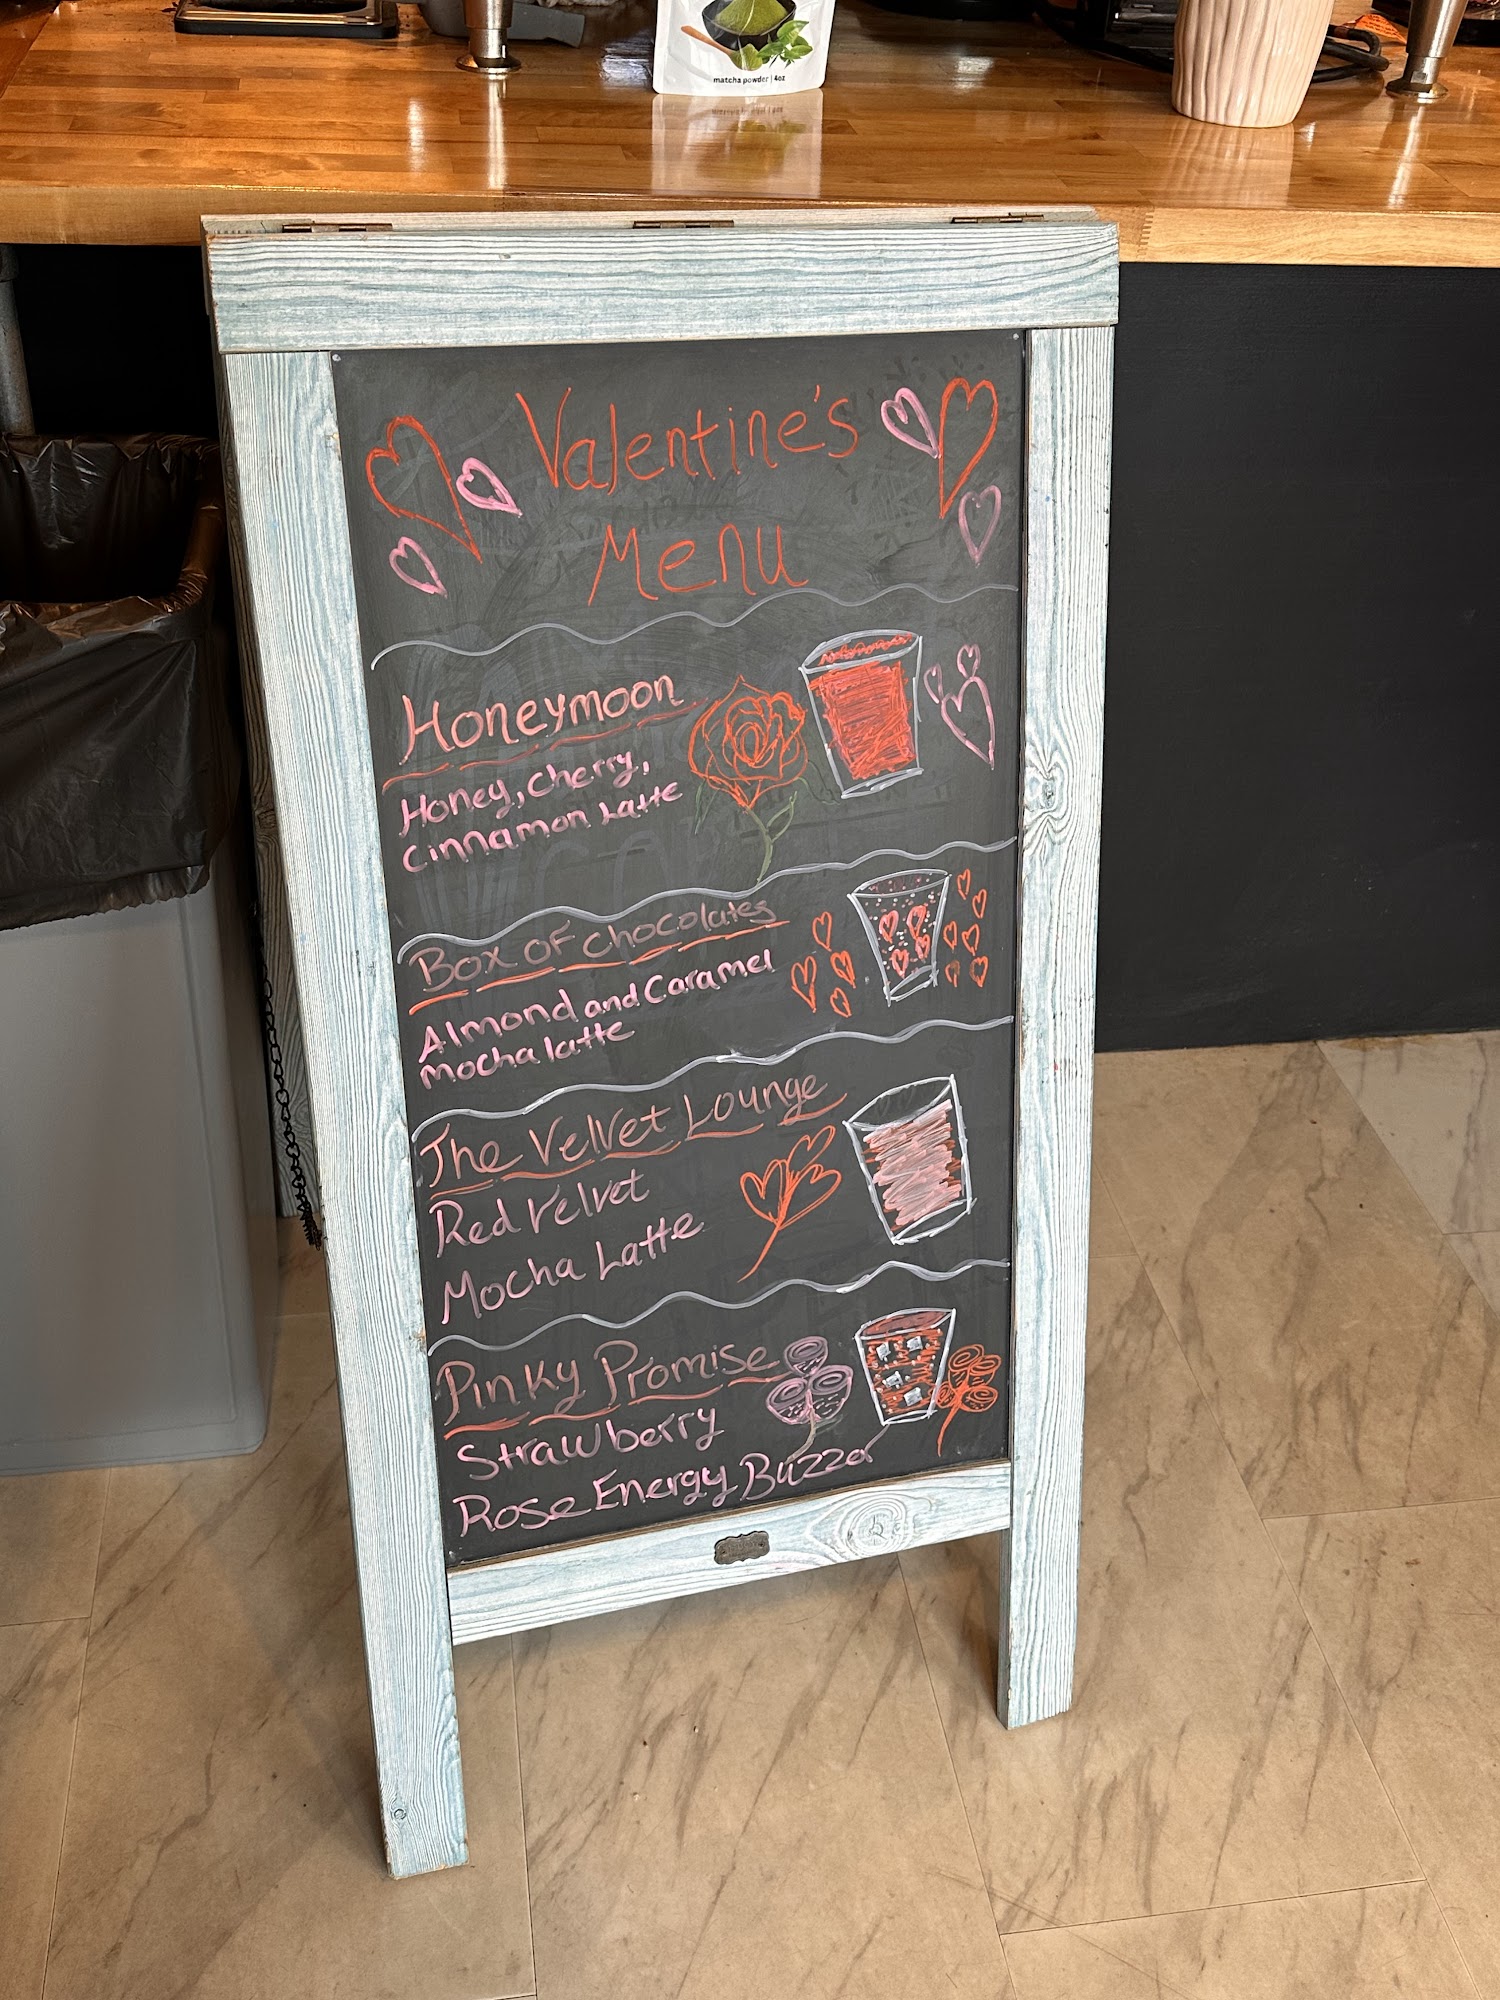 matcha powder | 4oz
Valentine's
Menu
Honeymoon
Honey, Cherry,
Cinnamon Latte
Box of chocolates
Almond and Caramel
mocha latte
The Velvet Lounge
Red Velvet
Mocha Latte
Pinky Promise
Strawberry
Rose Energy Buzza